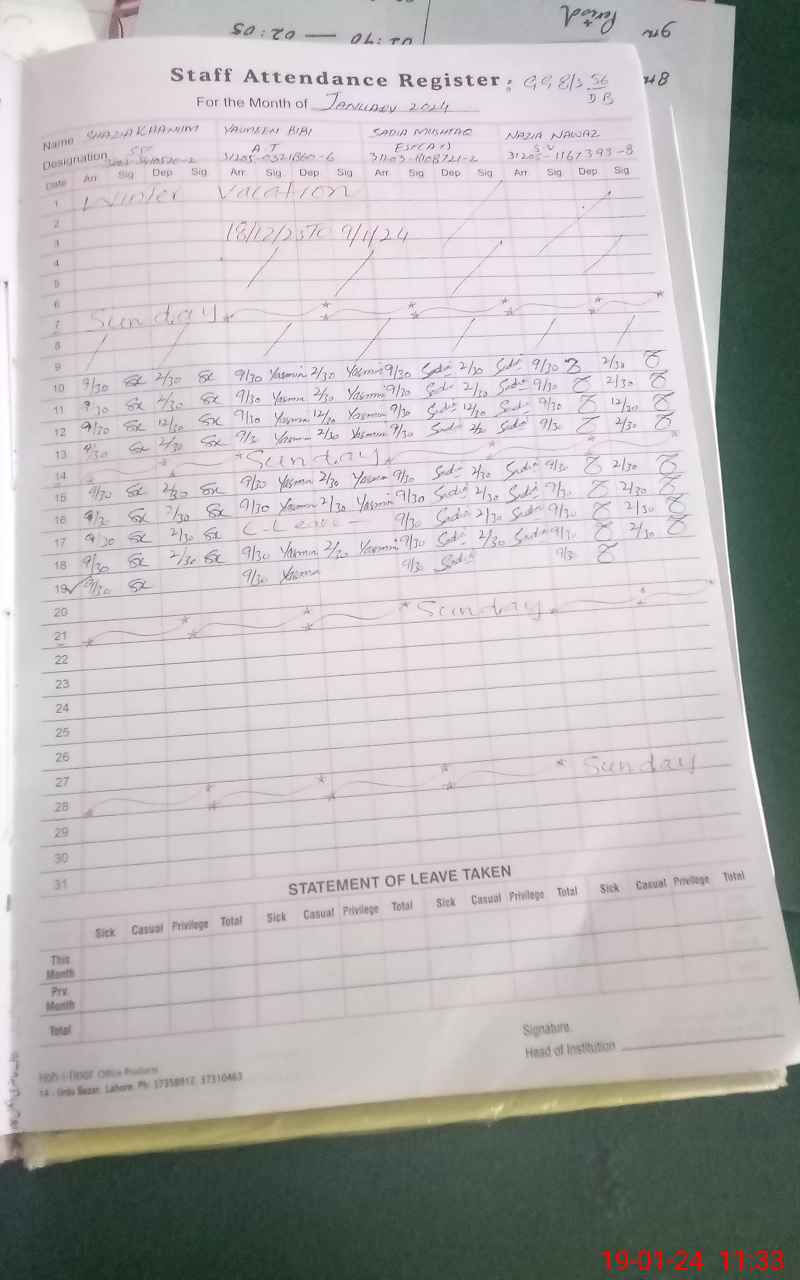 02:05 — 02:40
Period
Staff Attendance Register: G G 8/s 56/DB
For the Month of January 2024
Name SHAZIA KHANUM YASMEEN BIBI SADIA MUSHTAQ NAZIA NAWAZ
Designation A.T
31205-0521860-6 31203-1108721-2 31205-1167393-8
Date Arr Sig Dep Sig Arr Sig Dep Sig Arr Sig Dep Sig Arr Sig Dep Sig
1 Winter Vacation
2
3 18/12/23 To 9/1/24
4
5
6
7 Sunday
8
9
10 9/30 2/30 9/30 Yasmin 2/30 Yasmin 9/30 Sadia 2/30 Sadia 9/30 2/30
11 9/30 2/30 9/30 Yasmin 2/30 Yasmin 9/30 Sadia 2/30 Sadia 9/30 2/30
12 9/30 12/30 9/30 Yasmin 12/30 Yasmin 9/30 Sadia 12/30 Sadia 9/30 12/30
13 9/30 2/30 Yasmin 2/30 Yasmin 9/30 Sadia Sadia 9/30 2/30
14 Sunday
15 9/30 2/30 9/30 Yasmin 2/30 Yasmin 9/30 Sadia 2/30 Sadia 9/30 2/30
16 2/30 9/30 Yasmin 2/30 Yasmin 9/30 Sadia 2/30 Sadia 9/30 2/30
17 9/30 2/30 C. Leave — 9/30 Sadia 2/30 Sadia 9/30 2/30
18 9/30 2/30 9/30 Yasmin 2/30 Yasmin 9/30 Sadia 2/30 Sadia 9/30 2/30
19 9/30 9/30 Yasmin 9/30 Sadia 9/30
20
21 Sunday
22
23
24
25
26
27
28 Sunday
29
30
31
STATEMENT OF LEAVE TAKEN
Sick Casual Privilege Total Sick Casual Privilege Total Sick Casual Privilege Total Sick Casual Privilege Total
This Month
Prv. Month
Total
Signature
Head of Institution
Office Products
14 - Urdu Bazar, Lahore. Ph: 37358917, 37310463
19-01-24 11:33